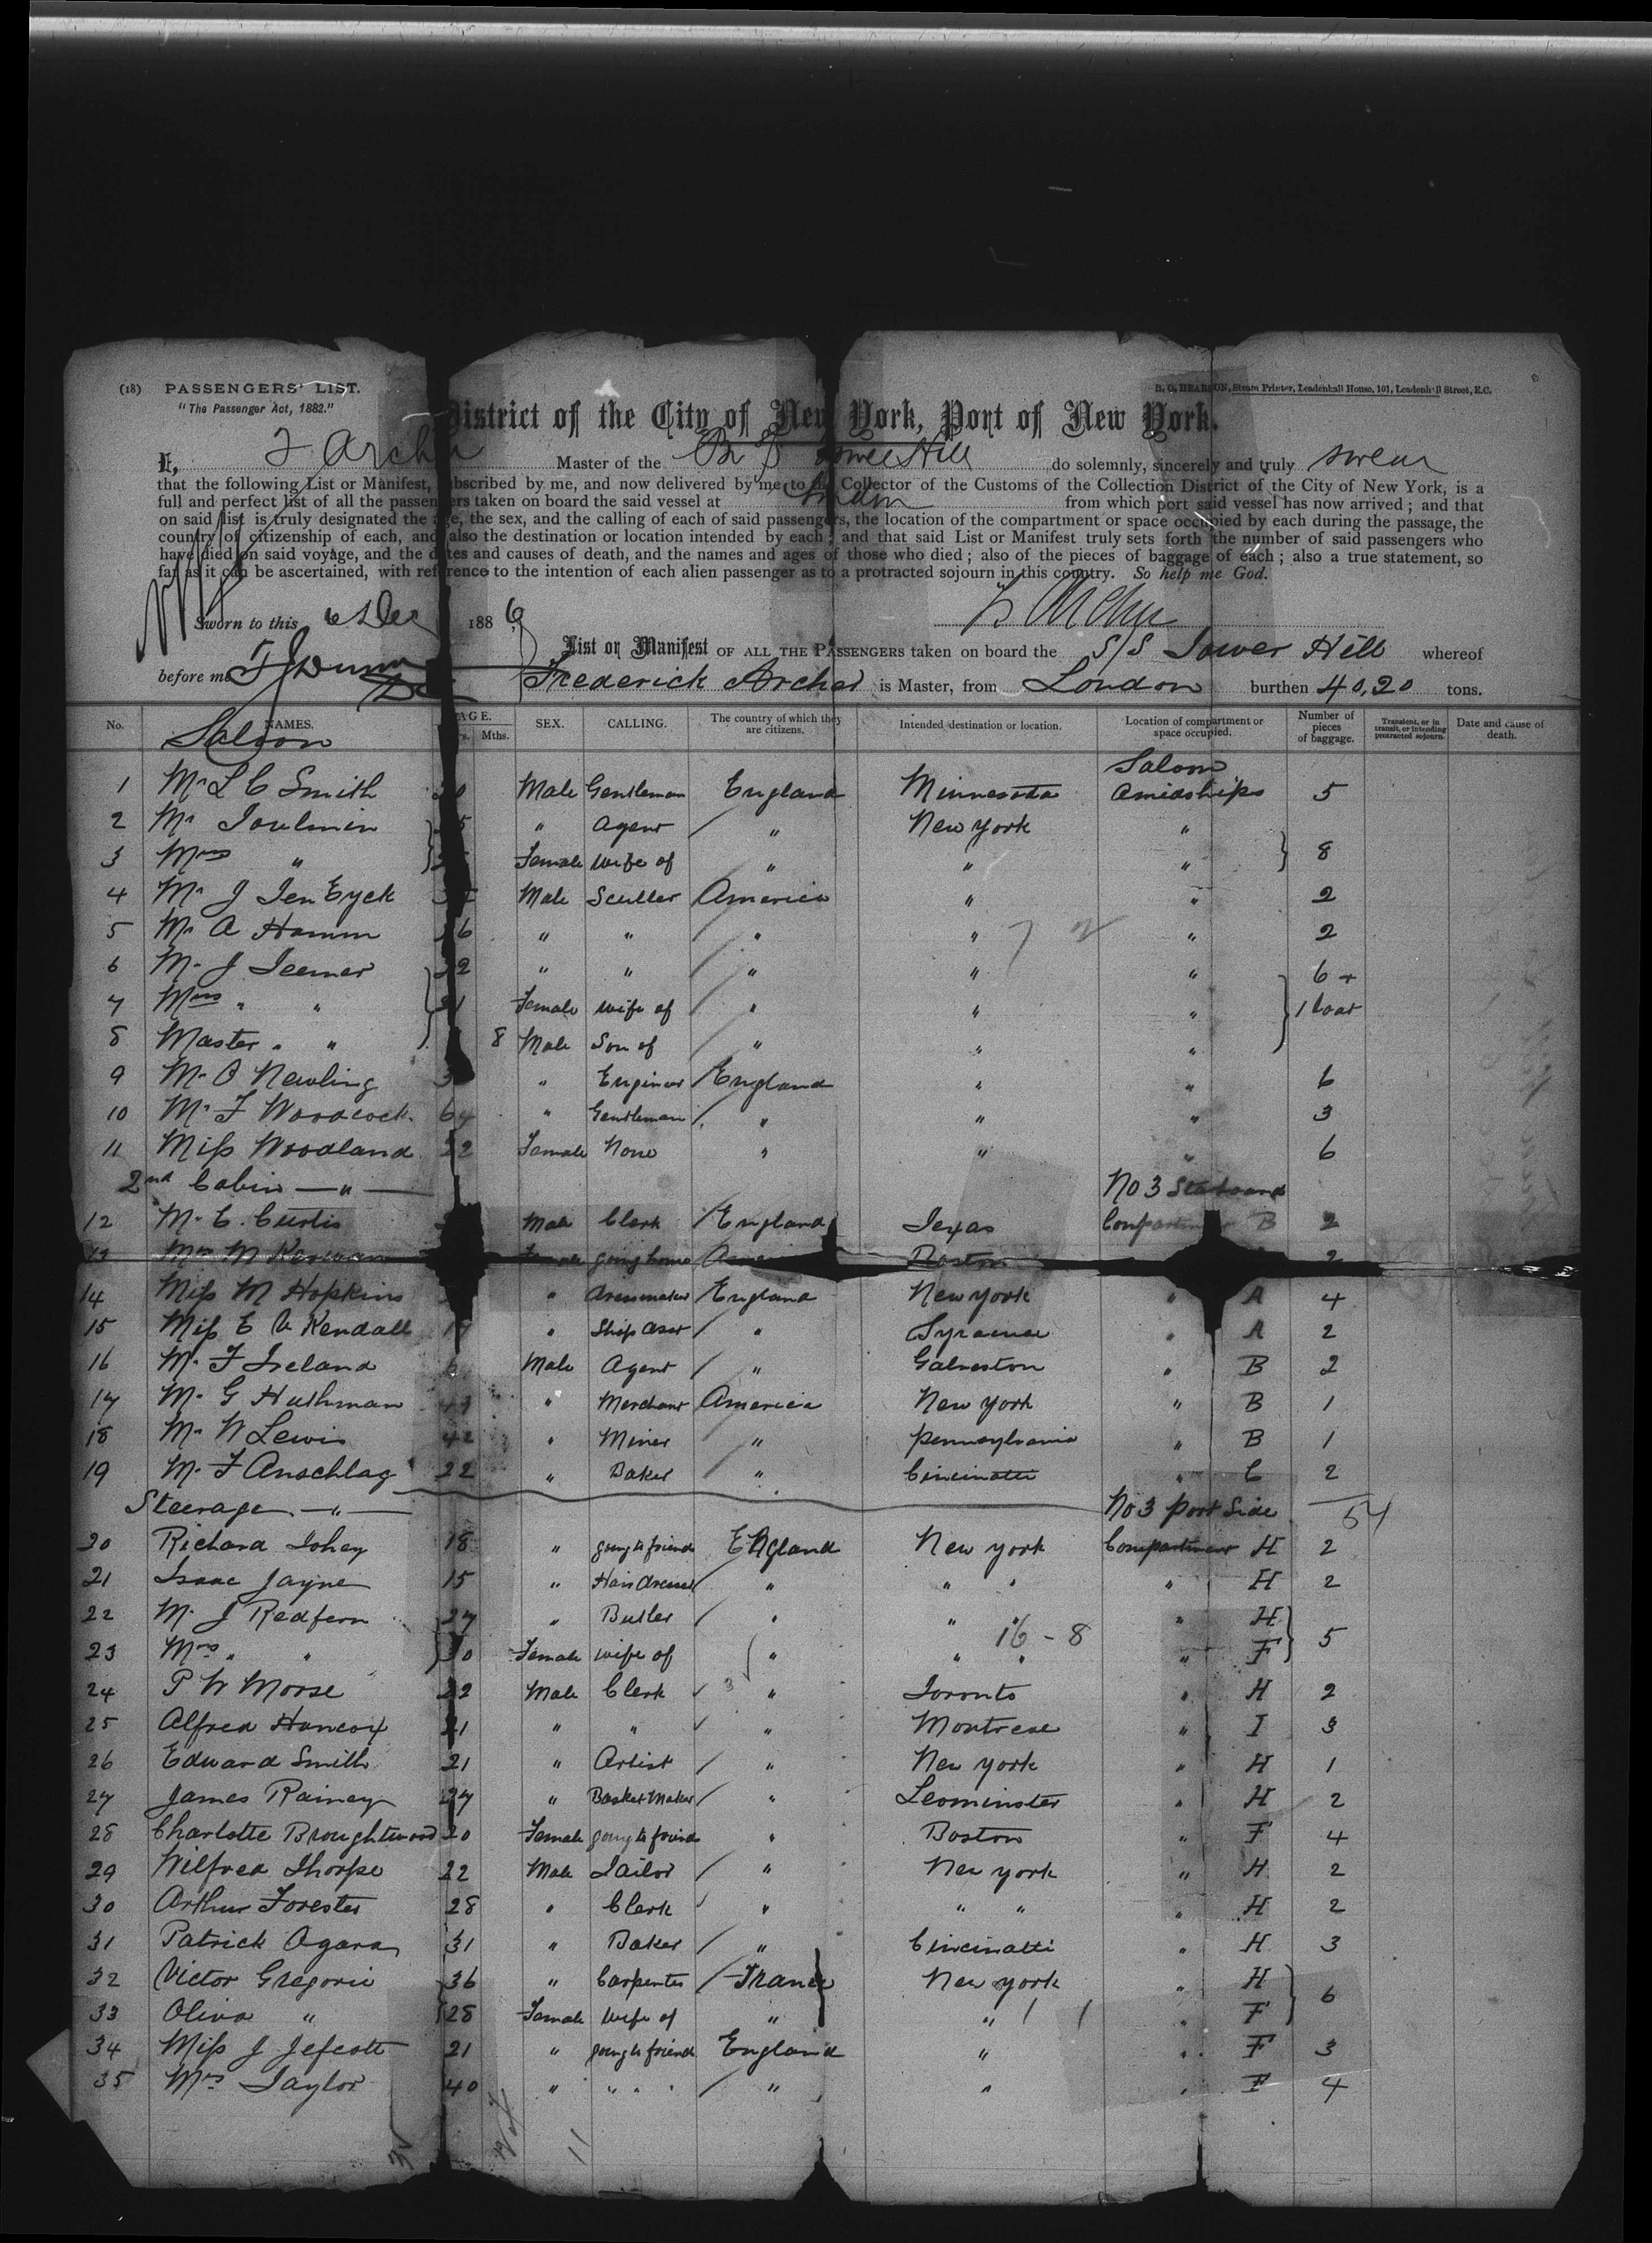 (18) PASSENGERS' LIST.
"The Passenger Act, 1882."
B. O. HEARSON, Steam Printer, Leadenhall House, 101, Leadenhall Street, E.C.
District of the City of New York, Port of New York.
I, F Archer Master of the Br SS Tower Hill do solemnly, sincerely and truly swear
that the following List or Manifest, subscribed by me, and now delivered by me to the Collector of the Customs of the Collection District of the City of New York, is a
full and perfect list of all the passengers taken on board the said vessel at London from which port said vessel has now arrived; and that
on said list is truly designated the age, the sex, and the calling of each of said passengers, the location of the compartment or space occupied by each during the passage, the
country of citizenship of each, and also the destination or location intended by each; and that said List or Manifest truly sets forth the number of said passengers who
have died on said voyage, and the dates and causes of death, and the names and ages of those who died; also of the pieces of baggage of each; also a true statement, so
far as it can be ascertained, with reference to the intention of each alien passenger as to a protracted sojourn in this country. So help me God.
F Archer
Sworn to this 6 Dec 1886
List or Manifest OF ALL THE PASSENGERS taken on board the S/S Tower Hill whereof
before me Frederick Archer is Master, from London burthen 40,20 tons.
No. NAMES. AGE. Mths. SEX. CALLING. The country of which they are citizens. Intended destination or location. Location of compartment or space occupied. Number of pieces of baggage. Transient, or in transit, or intending protracted sojourn. Date and cause of death.
Saloon
Saloon
1 Mr L C Smith Male Gentleman England Minnesota Amidships 5
2 Mr Toulmin " Agent " New York "
3 Mrs " Female Wife of " " " 8
4 Mr J Ten Eyck Male Sculler America " " 2
5 Mr A Hamm 26 " " " " " 2
6 Mr J Teemer 22 " " " " " 6 +
7 Mrs " " 21 Female Wife of " " " 1 boat
8 Master " " 8 Male Son of " " "
9 Mr O Newling " Engineer England " " 6
10 Mr F Woodcock 64 " Gentleman " " " 3
11 Miss Woodland 22 Female None " " " 6
2nd Cabin — " — No 3 Starboard
12 Mr E. Curtis Male Clerk England Texas Compartment B 2
13 Mrs M Kerwan Female going home America Boston 2
14 Miss M Hopkins " Dressmaker England New York " A 4
15 Miss E A Kendall " Shop Asst " Syracuse " A 2
16 Mr F Ireland Male Agent " Galveston " B 2
17 Mr G Huthman " Merchant America New York " B 1
18 Mr W Lewis 42 " Miner " Pennsylvania " B 1
19 Mr F Anschlag 22 " Baker " Cincinatti " C 2
Steerage — " — No 3 Port Side 54
20 Richard Tohey 18 " going to friends England New York Compartment H 2
21 Isaac Jayne 15 " Hair dresser " " " " H 2
22 Mr J Redfern 27 " Butler " " " " H
16 - 8
23 Mrs " " 30 Female Wife of " " " " F 5
24 P W Morse 22 Male Clerk " Toronto " H 2
25 Alfred Hancox 21 " " " Montreal " I 3
26 Edward Smith 21 " Artist " New York " H 1
27 James Rainey 27 " Basket Maker " Leominster " H 2
28 Charlotte Broughtwood 20 Female going to friends " Boston " F 4
29 Wilfred Thorpe 22 Male Tailor " New York " H 2
30 Arthur Forester 28 " Clerk " " " " H 2
31 Patrick Ogara 31 " Baker " Cincinatti " H 3
32 Victor Gregorie 36 " Carpenter France New York " H
33 Oliva " 28 Female Wife of " " " F 6
34 Miss J Jefcott 21 " going to friends England " " F 3
35 Mrs Taylor 40 " " " " " " " F 4
11